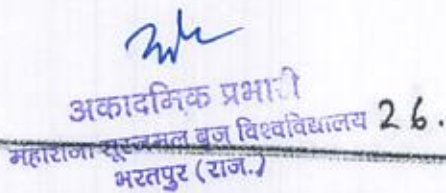 अकादमिक प्रभारी
महाराजा सूरजमल बृज विश्वविद्यालय 26.
भरतपुर (राज.)